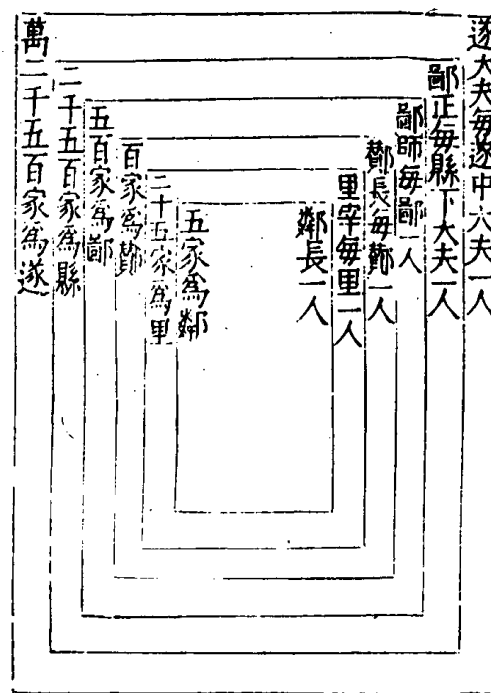 遂大夫每遂中大夫一人
鄙正每縣下大夫一人
鄙師每鄙一人
酇長每酇一人
里宰每里一人
鄰長一人
五家為鄰
二十五家為里
百家為酇
五百家為鄙
二千五百家為縣
萬二千五百家為遂